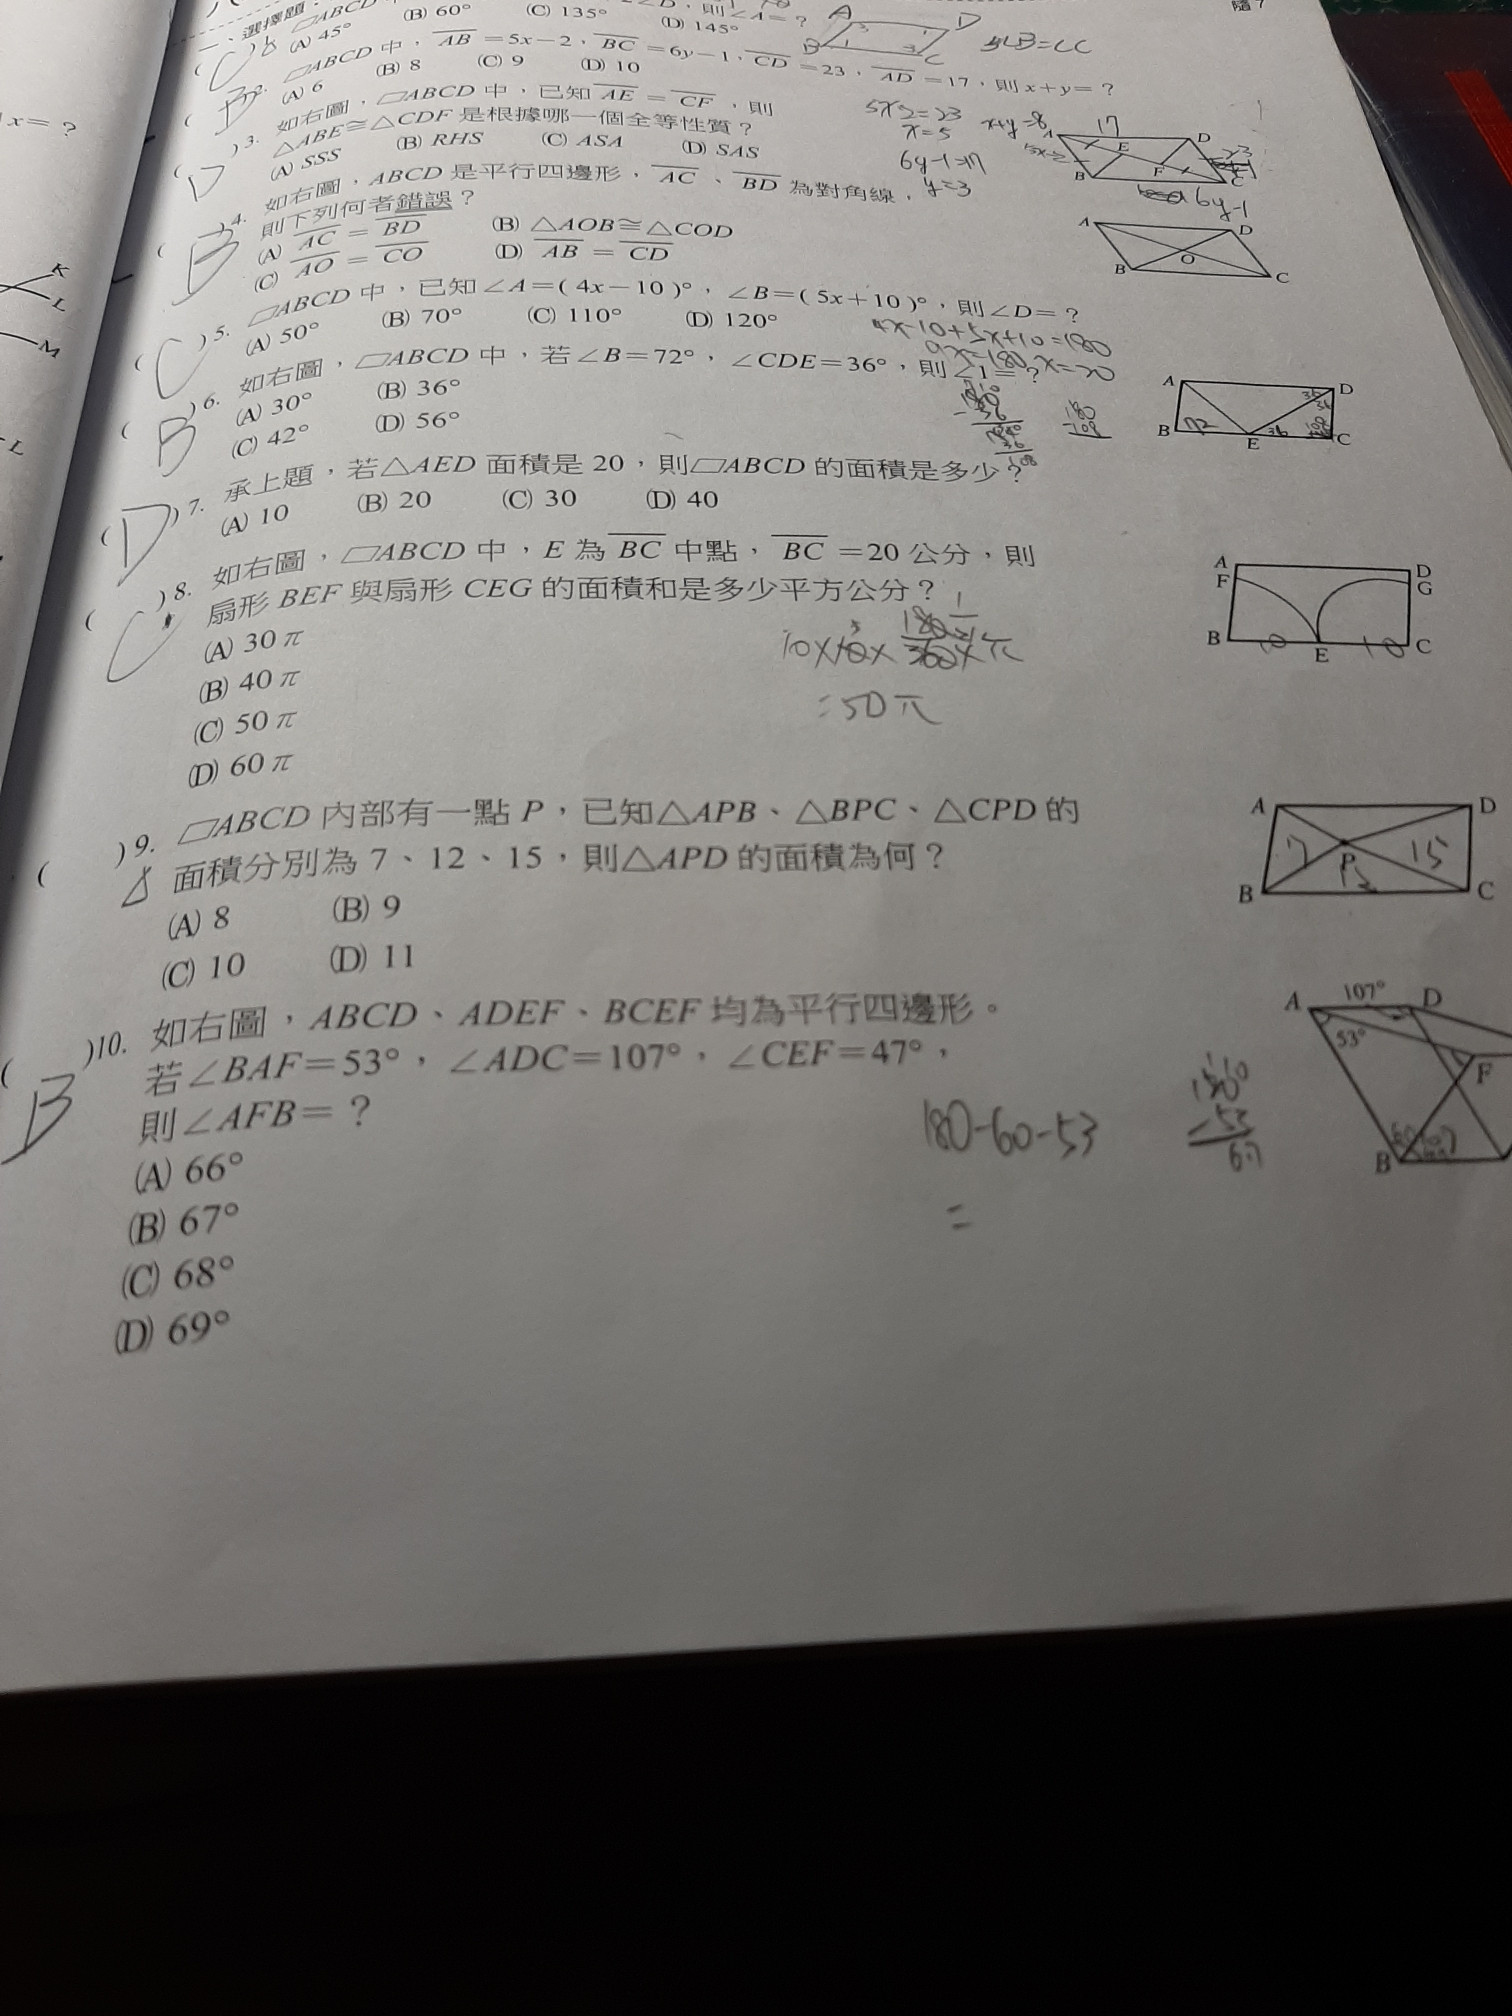 一、選擇題：
▱ABCD
則∠A=？
(A) 45° (B) 60° (C) 135° (D) 145°
∠B=∠C
2. ▱ABCD 中，AB=5x−2，BC=6y−1，CD=23，AD=17，則 x+y=？
(A) 6 (B) 8 (C) 9 (D) 10
B
3. 如右圖，▱ABCD 中，已知 AE=CF，則
△ABE≅△CDF 是根據哪一個全等性質？
(A) SSS (B) RHS (C) ASA (D) SAS
D
x=5
x+y=8
6y-1=17
y=3
17
6y-1
A E D B F C
4. 如右圖，ABCD 是平行四邊形，AC、BD 為對角線，
則下列何者錯誤？
(A) AC=BD (B) △AOB≅△COD
(C) AO=CO (D) AB=CD
B
A D O B C
5. ▱ABCD 中，已知∠A=(4x−10)°，∠B=(5x+10)°，則∠D=？
(A) 50° (B) 70° (C) 110° (D) 120°
C
4x-10+5x+10=180
9x=180, x=20
6. 如右圖，▱ABCD 中，若∠B=72°，∠CDE=36°，則∠1=？
(A) 30° (B) 36°
(C) 42° (D) 56°
B
180
-108
A D B E C
72 36 36
7. 承上題，若△AED 面積是 20，則▱ABCD 的面積是多少？
(A) 10 (B) 20 (C) 30 (D) 40
D
8. 如右圖，▱ABCD 中，E 為 BC 中點，BC=20 公分，則
扇形 BEF 與扇形 CEG 的面積和是多少平方公分？
(A) 30π
(B) 40π
(C) 50π
(D) 60π
C
=50π
A D
F G
B 10 E 10 C
9. ▱ABCD 內部有一點 P，已知△APB、△BPC、△CPD 的
面積分別為 7、12、15，則△APD 的面積為何？
(A) 8 (B) 9
(C) 10 (D) 11
A D
7 P 15
B 12 C
10. 如右圖，ABCD、ADEF、BCEF 均為平行四邊形。
若∠BAF=53°，∠ADC=107°，∠CEF=47°，
則∠AFB=？
(A) 66°
(B) 67°
(C) 68°
(D) 69°
B
180-60-53
=
A 107° D
53°
F
B
隨 7
x=？
K
L
M
L